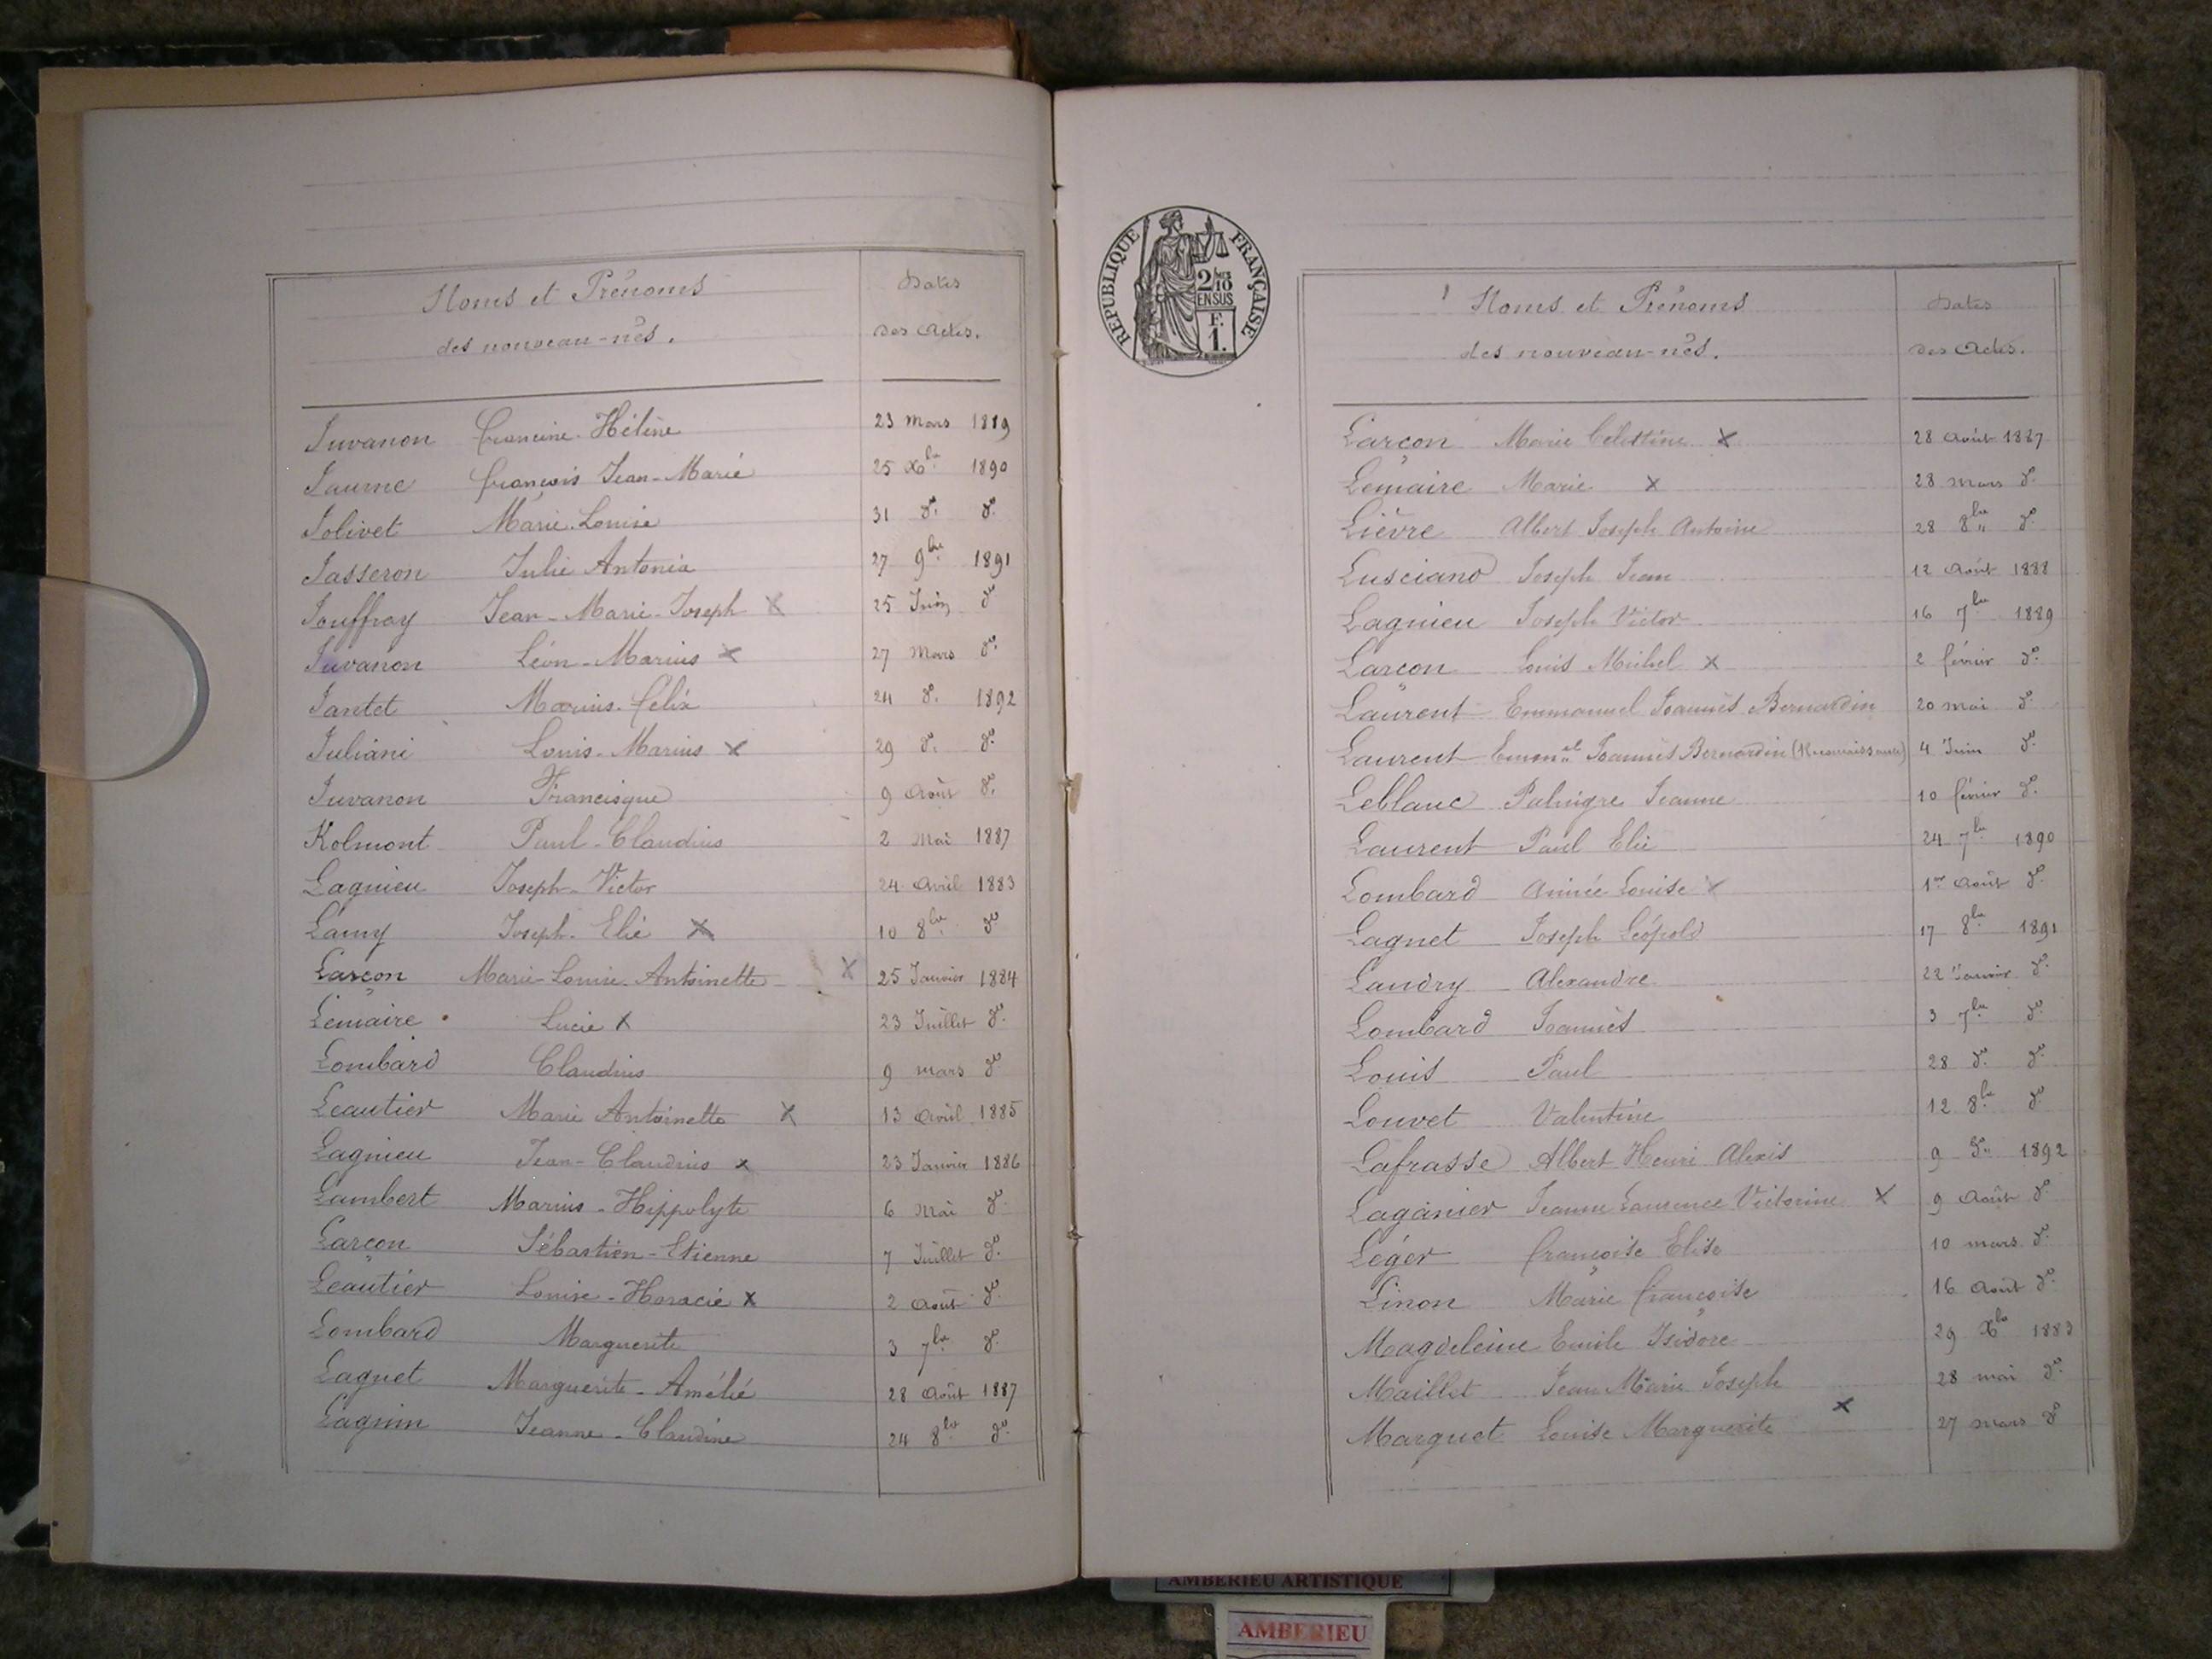 Noms et Prénoms
des nouveau-nés.
Dates
des Actes.
Juvanon Francine-Hélène 23 mars 1889
Jaume François Jean-Marie 25 Xbre 1890
Jolivet Marie-Louise 31 do. do.
Jasseron Julie Antonia 27 9bre 1891
Jouffray Jean-Marie-Joseph X 25 Juin do
Juvanon Léon-Marius X 27 Mars do.
Jantet Marius-Félix 24 do. 1892
Juliani Louis-Marius X 29 do. do.
Juvanon Francisque 9 Août do.
Kolmont Paul-Claudius 2 Mai 1887
Lagnieu Joseph-Victor 24 Avril 1883
Lamy Joseph-Elie X 10 8bre do
Larçon Marie-Louise-Antoinette X 25 Janvier 1884
Lemaire Lucie X 23 Juillet do.
Lombard Claudius 9 mars do
Leautier Marie Antoinette X 13 Avril 1885
Lagnieu Jean-Claudius x 23 Janvier 1886
Lambert Marius-Hippolyte 6 Mai do.
Larçon Sébastien-Etienne 7 Juillet do.
Leautier Louise-Horacie X 2 Août do.
Lombard Marguerite 3 7bre do.
Lagnet Marguerite-Amélie 28 Août 1887
Jeanne-Claudine 24 8bre do.
REPUBLIQUE FRANÇAISE
2/10
EN SUS
F.
1.
Noms et Prénoms
des nouveau-nés.
Dates
des Actes.
Larçon Marie Célestine X 28 Août 1887
Lemaire Marie X 28 mars do.
Lièvre Albert Joseph Antoine 28 8bre do.
Lusciano Joseph Jean 12 Août 1888
Lagnieu Joseph Victor 16 7bre 1889
Larçon Louis Michel X 2 février do.
Laurent Emmanuel Joannès Bernardin 20 mai do.
Laurent Emmel Joannès Bernardin (Reconnaissance) 4 Juin do.
Leblanc Jeanne 10 février do.
Laurent Paul Elie 24 7bre 1890
Lombard Aimée Louise X 1er Août do.
Lagnet Joseph Léopold 17 8bre 1891
Landry Alexandre 22 Janvier do.
Lombard Joannès 3 7bre do.
Louis Paul 28 do. do.
Louvet Valentine 12 8bre do.
Lafrasse Albert Henri Alexis 9 do. 1892
Laganier Jeanne Laurence Victorine X 9 Août do.
Léger Françoise Elise 10 mars do.
Linon Marie Françoise 16 Août do.
Magdeleine Emile Isidore 29 Xbre 1883
Maillet Jean Marie Joseph 28 mai do.
Marguet Louise Marguerite X 27 mars do
AMBERIEU ARTISTIQUE
AMBERIEU